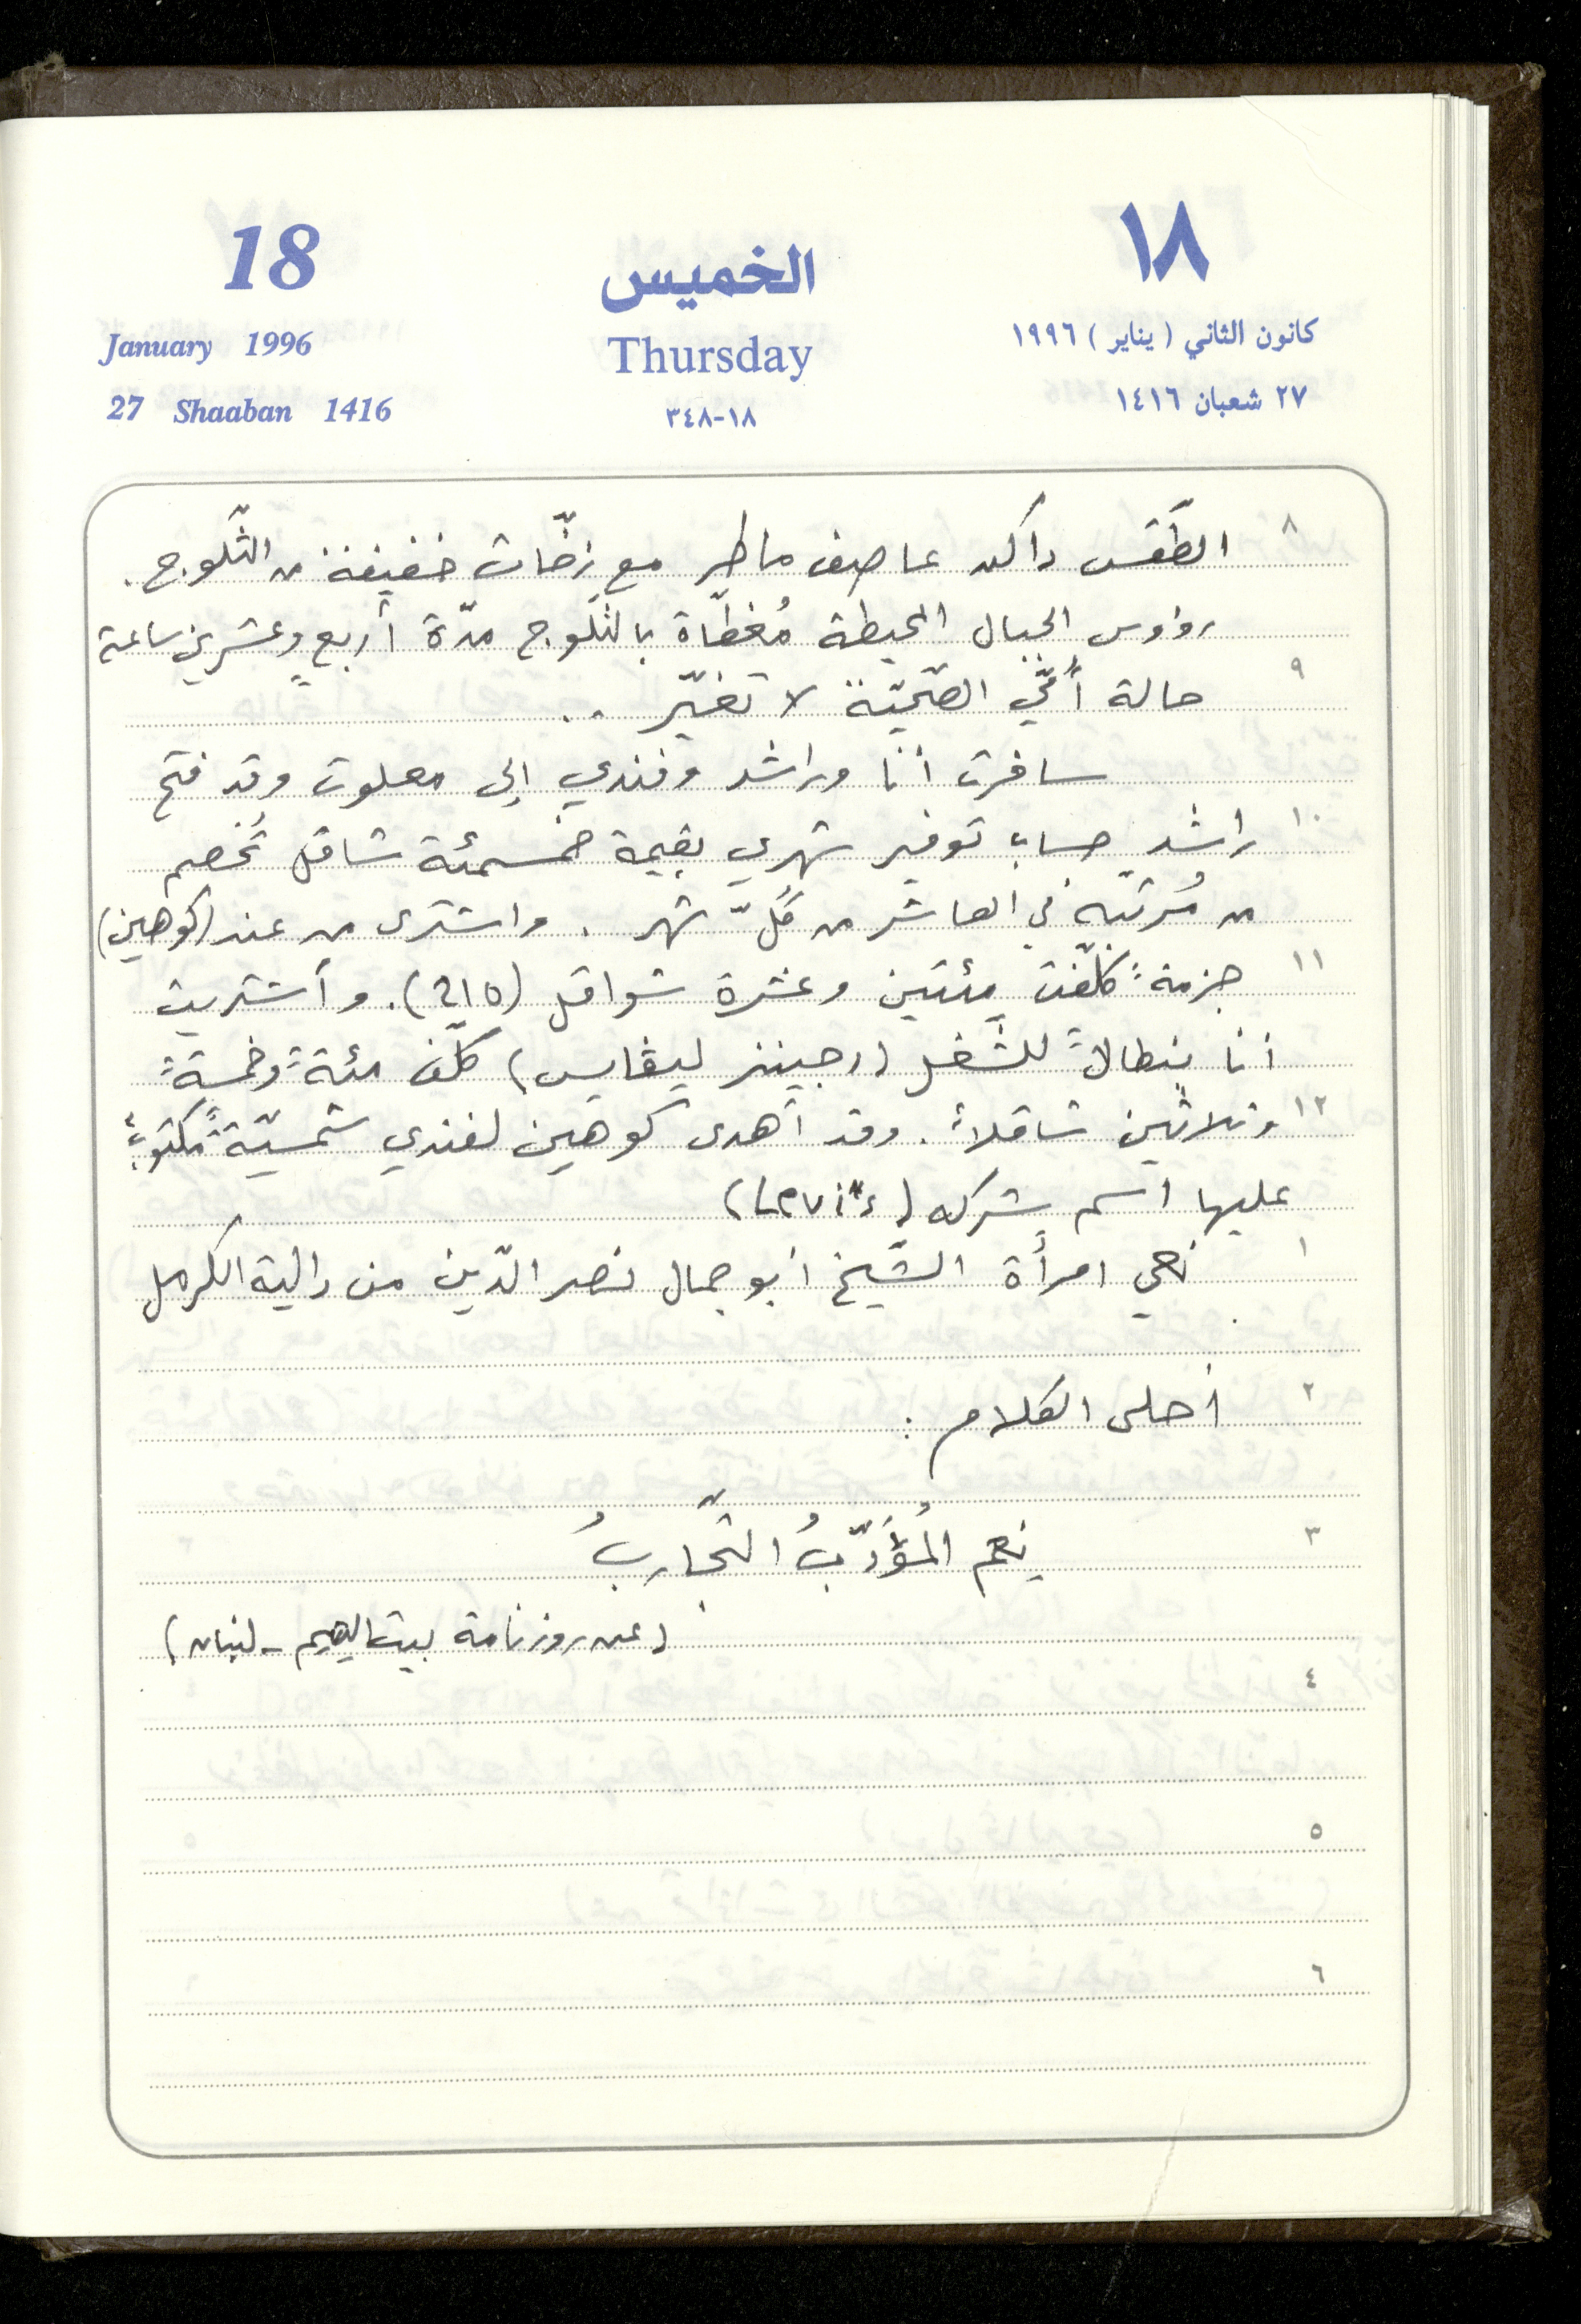 18
الخميس
١٨
January 1996
Thursday
كانون الثاني (يناير) ١٩٩٦
27 Shaaban 1416
١٨-٣٤٨
٢٧ شعبان ١٤١٦
٨ الطّقس داكن عاصف ماطر مع زخّات خفيفة من الثّلوج.
رؤوس الجبال المحيطة مُغطّاة بالثّلوج مدّة أربعٍ وعشرين ساعة
٩ حالة أمّي الصّحيّة لا تغيّر ..
سافرت أنا وراشد وفندي إلى معلوت وقد فتح
١٠ راشد حساب توفير شهري بقيمة خمسمئة شاقل تُخصم
من مُرتبّه في العاشر من كلّ شهر. واشترى من عند (كوهين)
١١ جزمةً كلّفت مئتين وعشرة شواقل (210). وأشتريت
أنا بنطالاً للشّغل (جينز ليڤايس) كلّف مئةً وخمسةً
١٢ وثلاثين شاقلاً. وقد أهدى كوهين لفندي شمسيّةً مكتوبٌ
عليها اسم شركه (Levi's)
١ نعي امرأة الشّيخ أبو جمال نصر الدّين من دالية الكرمل
٢ أحلى الكلام :
٣ نِعم المُؤَدّبُ التّجاربُ
(عن روزنامة بيت اليتيم - لبنان)
٤
٥
٦